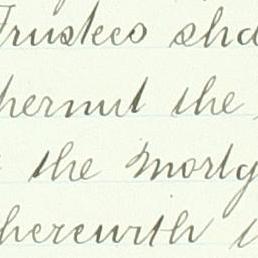 Trustees sha
hermit the
the Mortg
herewith